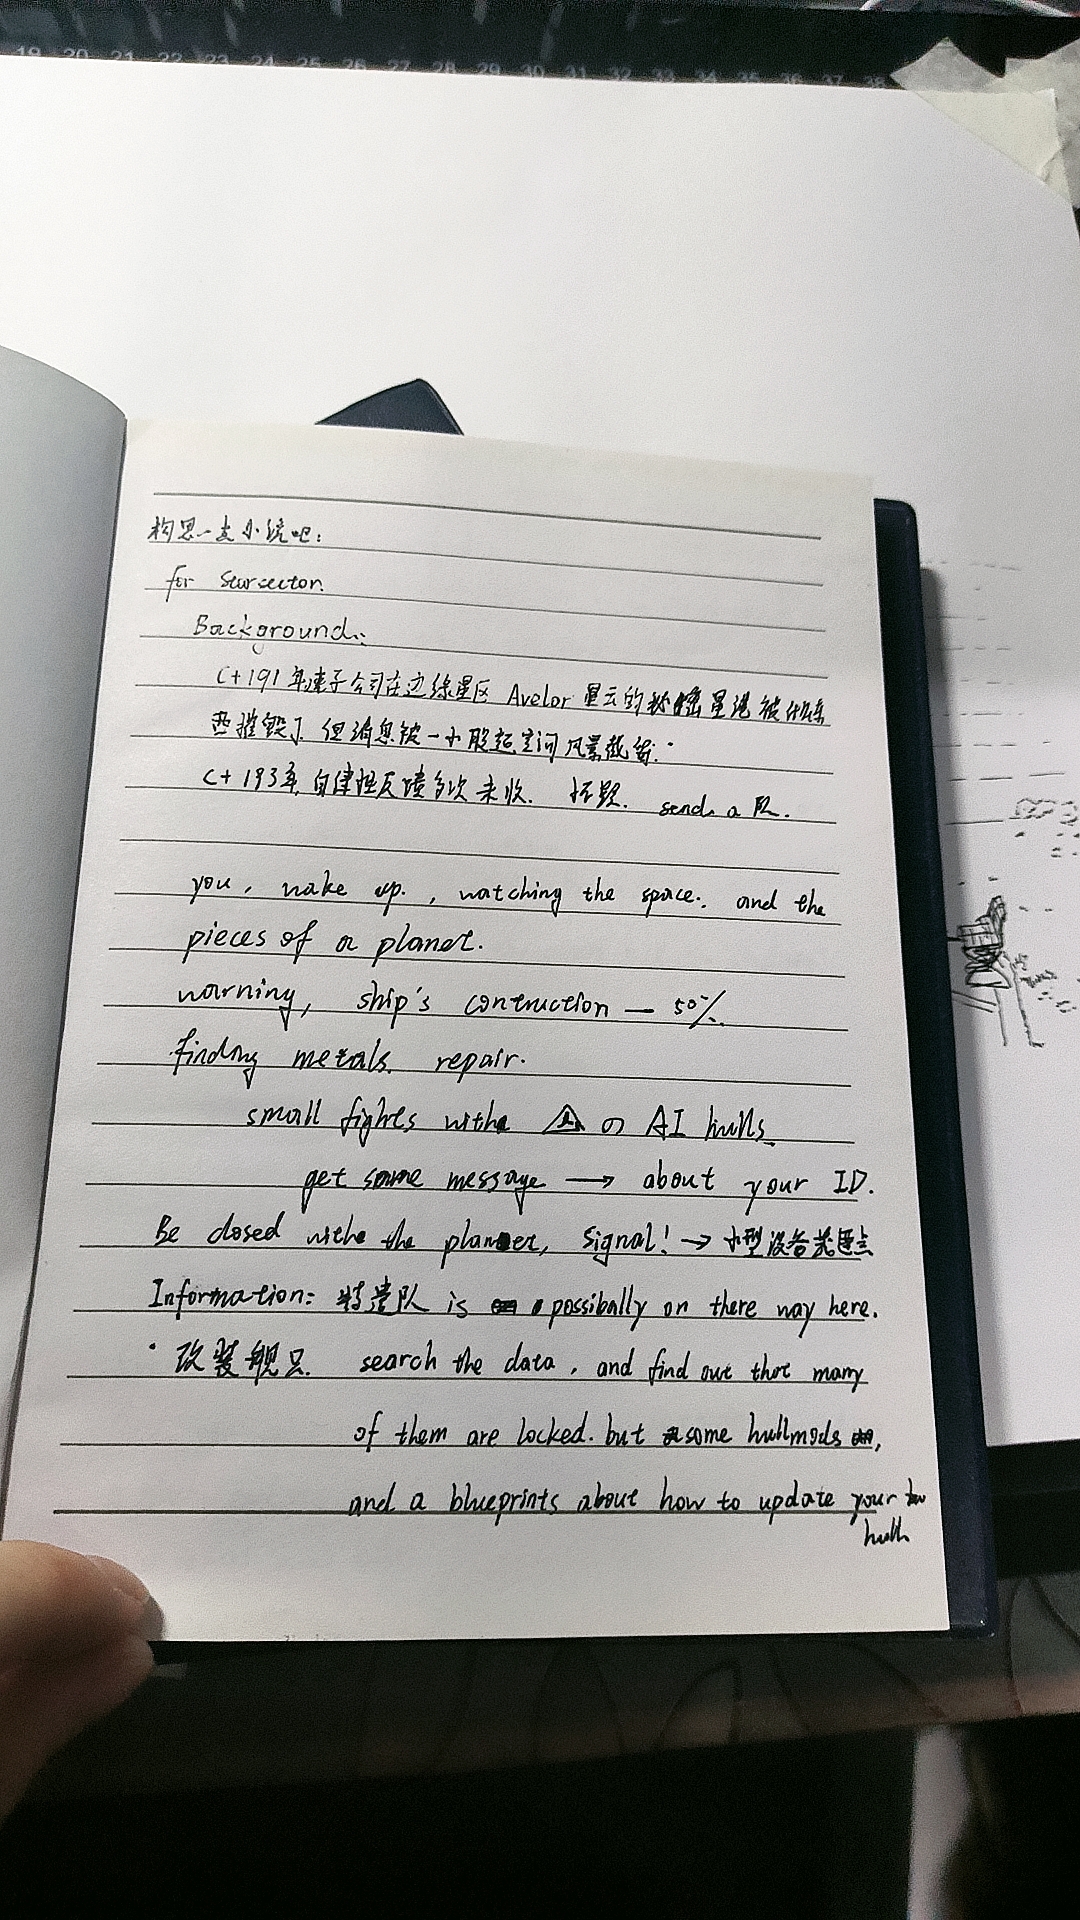 19 20 21 22 23 24 25 26 27 28 29 30 31 32 33 34 35 36 37 38
构思一支小统吧:
for Starsector.
Background:
C+191年速子公司在边缘星区 Avelor 星云的秘密星港被
摧毁了. 但消息被一小股超空间风暴截留.
C+193年, 自律性反馈多次未收. 怀疑. send a 队.
you, wake up. , watching the space. and the
pieces of a planet.
warning, ship's contruction — 50%.
finding metals. repair.
small fights withe の AI hulls.
get some message → about your ID.
Be closed withe the planet, signal! → 小型设备
Information: 特遣队 is possibally on there way here.
· 改装舰只 search the data, and find out that many
of them are locked. but some hullmods ,
and a blueprints about how to update your
hulls